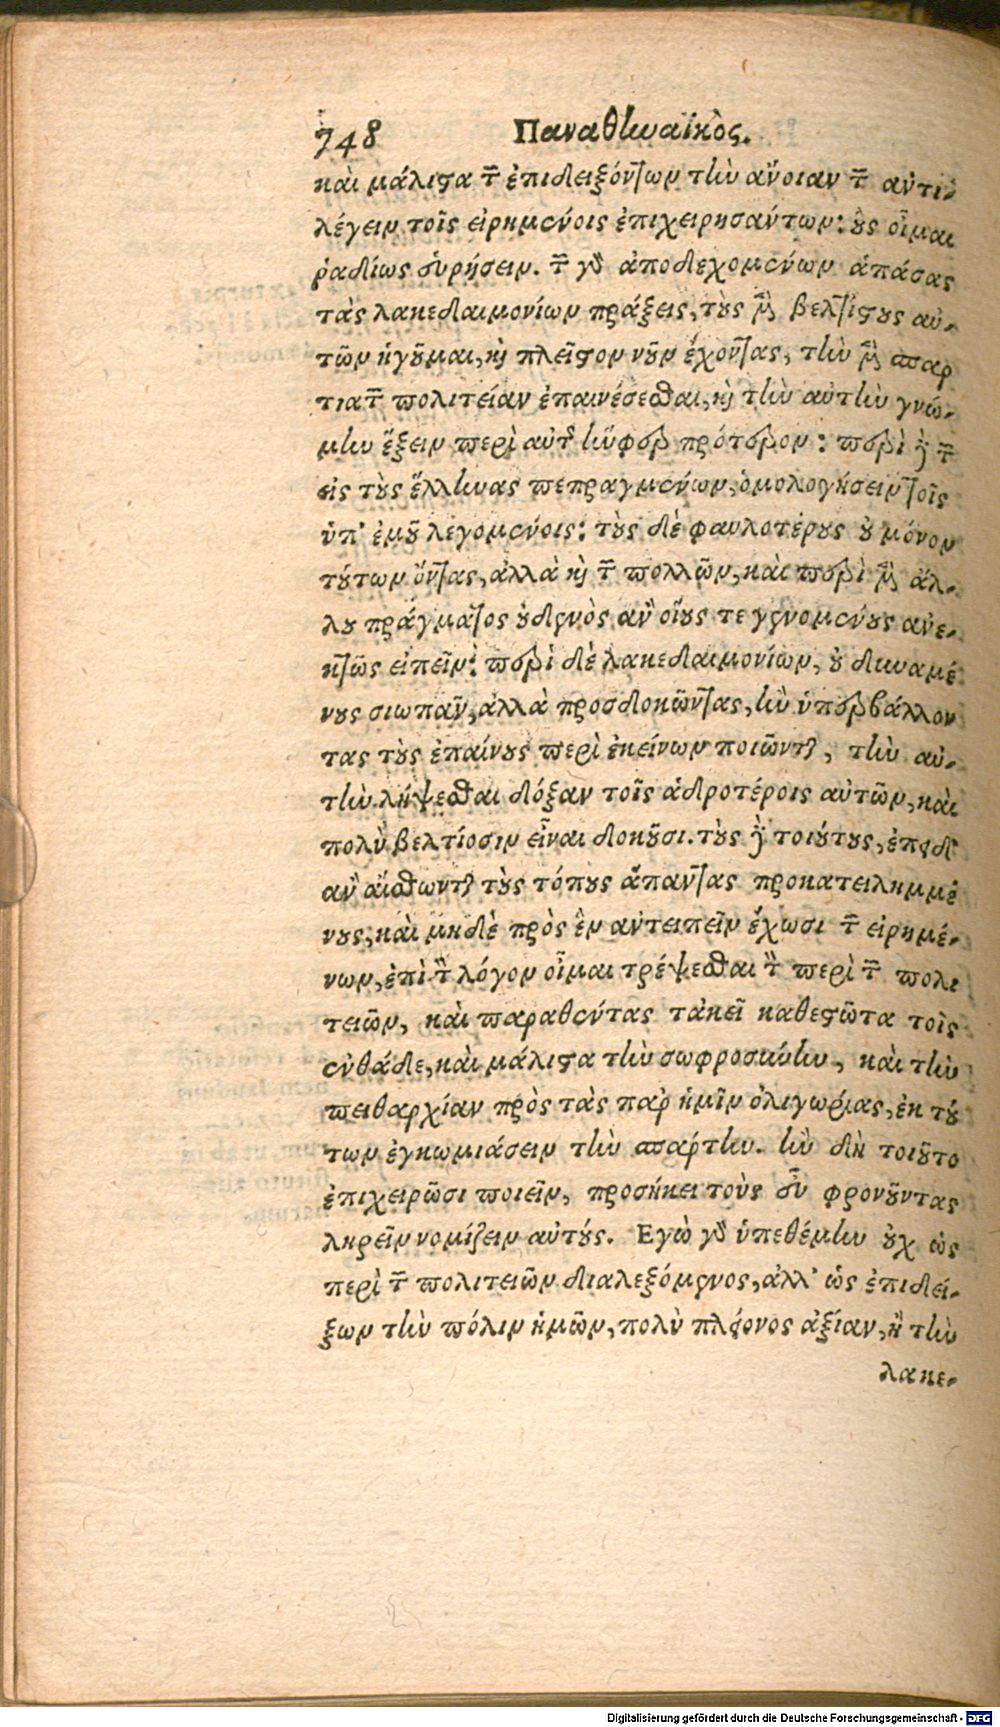 748 Παναθηναϊκὸς.
καὶ μάλιστα τῶν ἐπιδειξόντων τὴν ἄνοιαν τῶν ἀντι-
λέγειν τοῖς εἰρημένοις ἐπιχειρησάντων: οὓς οἶμαι
ῥαδίως εὑρήσειν. τῶν γὰρ ἀποδεχομένων ἁπάσας
τὰς λακεδαιμονίων πράξεις, τοὺς μὲν βελτίστους αὐ-
τῶν ἡγοῦμαι, καὶ πλεῖστον νοῦν ἔχοντας, τὴν μὲν σπαρ
τιατῶν πολιτείαν ἐπαινέσεσθαι, καὶ τὴν αὐτὴν γνώ-
μην ἕξειν περὶ αὐτῆς ἥνπερ πρότερον: περὶ δὲ τῶν
εἰς τοὺς ἕλληνας πεπραγμένων, ὁμολογήσειν τοῖς
ὑπ' ἐμοῦ λεγομένοις: τοὺς δὲ φαυλοτέρους οὐ μόνον
τούτων ὄντας, ἀλλὰ καὶ τῶν πολλῶν, καὶ περὶ μὲν ἄλ-
λου πράγματος οὐδενὸς ἂν οἵους τε γενομένους ἀνε-
κτῶς εἰπεῖν: περὶ δὲ λακεδαιμονίων, οὐ δυναμέ
νους σιωπᾶν, ἀλλὰ προσδοκῶντας, ἢν ὑπερβάλλον
τας τοὺς ἐπαίνους περὶ ἐκείνων ποιῶνται, τὴν αὐ-
τὴν λήψεσθαι δόξαν τοῖς ἁδροτέροις αὐτῶν, καὶ
πολὺ βελτίοσιν εἶναι δοκοῦσι. τοὺς δὲ τοιούτους, ἐπειδὰν
ἂν αἴσθωνται τοὺς τόπους ἅπαντας προκατειλημμέ
νους, καὶ μηδὲ πρὸς ἓν ἀντειπεῖν ἔχωσι τῶν εἰρημέ-
νων, ἐπὶ τὸν λόγον οἶμαι τρέψεσθαι τὸν περὶ τῶν πολι
τειῶν, καὶ παραθέντας τἀκεῖ καθεστῶτα τοῖς
ἐνθάδε, καὶ μάλιστα τὴν σωφροσύνην, καὶ τὴν
πειθαρχίαν πρὸς τὰς παρ' ἡμῖν ὀλιγωρίας, ἐκ τού
των ἐγκωμιάσειν τὴν σπάρτην. ἢν δὴ τοιοῦτο
ἐπιχειρῶσι ποιεῖν, προσήκει τοὺς εὖ φρονοῦντας
ληρεῖν νομίζειν αὐτούς. Ἐγὼ γὰρ ὑπεθέμην οὐχ ὡς
περὶ τῶν πολιτειῶν διαλεξόμενος, ἀλλ' ὡς ἐπιδεί-
ξων τὴν πόλιν ἡμῶν, πολὺ πλείονος ἀξίαν, ἢ τὴν
λακε-
Digitalisierung gefördert durch die Deutsche Forschungsgemeinschaft - DFG